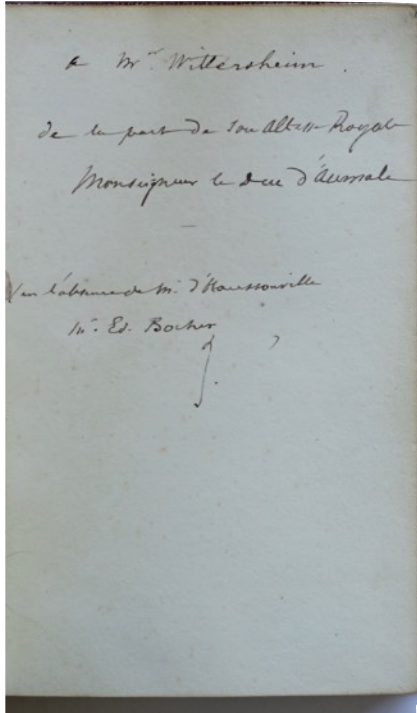 a Mr Wittersheim.
de la part de Son Altesse Royale
Monseigneur le duc d'Aumale
en l'absence de Mr d'Haussonville
Mr Ed. Bocher